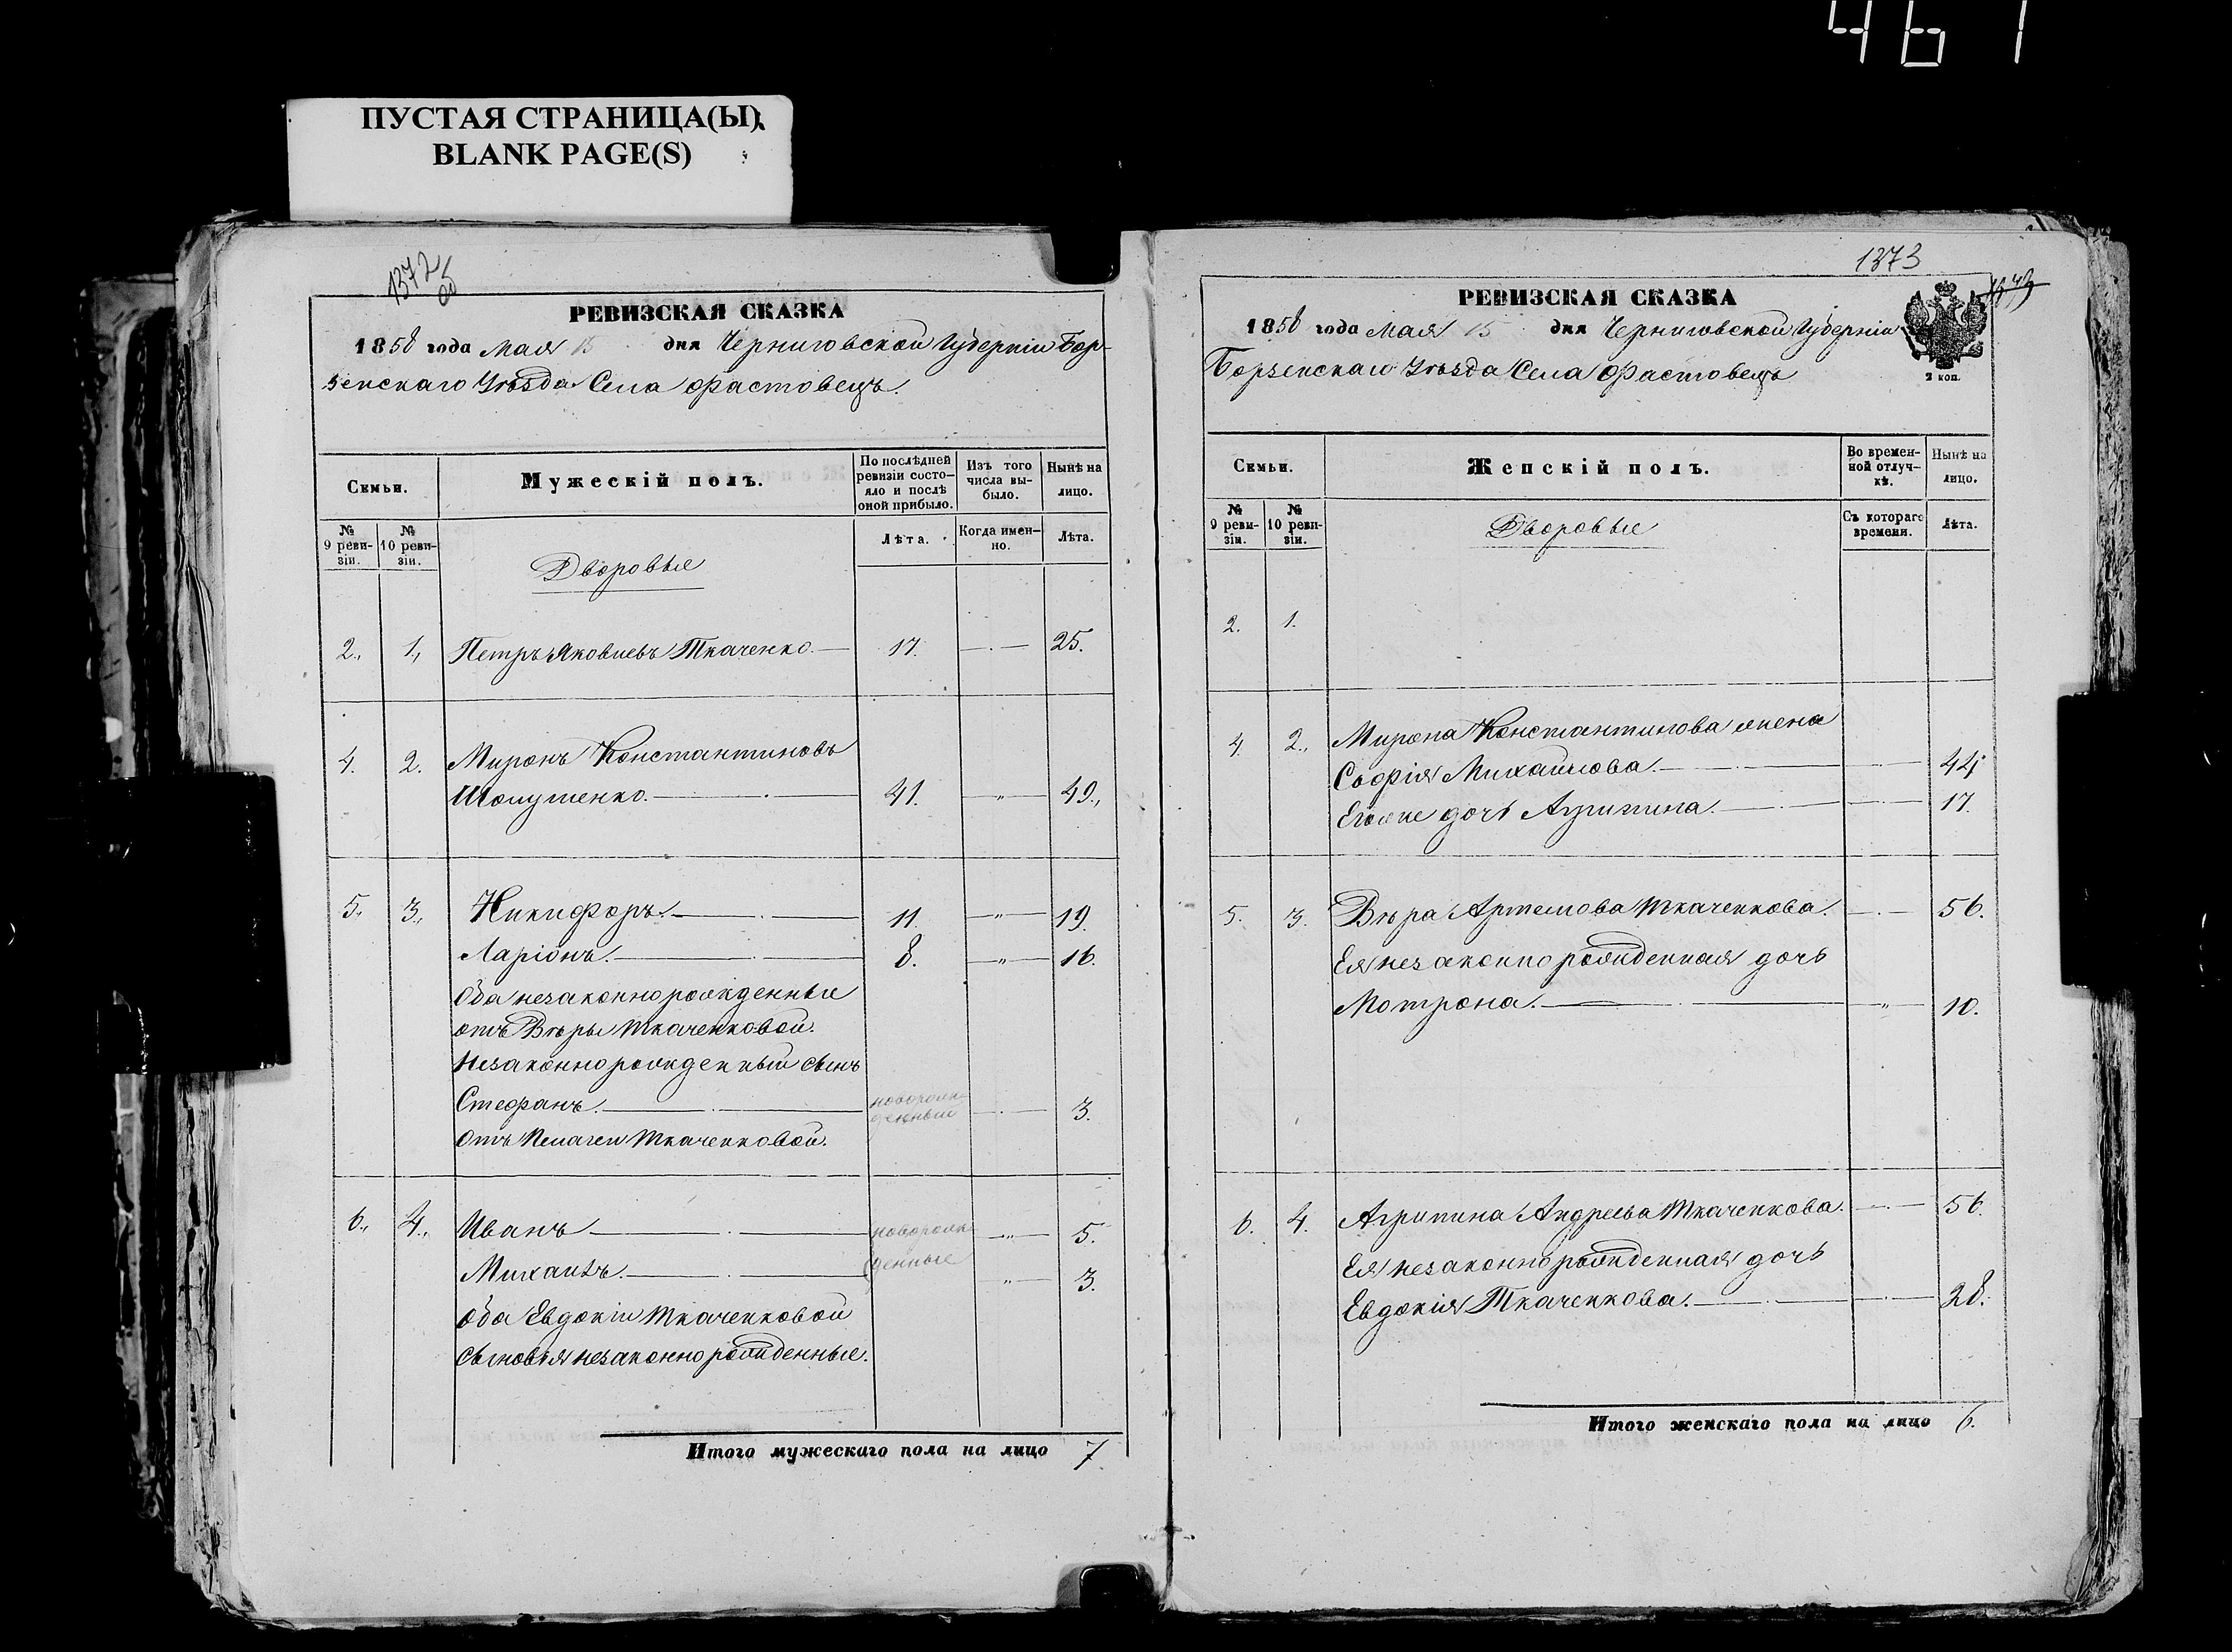 461
ПУСТАЯ СТРАНИЦА(Ы)
BLANK PAGE(S)
1372
об
РЕВИЗСКАЯ СКАЗКА
1858 года Мая 15 дня Черниговской Губерніи Бор-
зенскаго Уѣзда Села Фастовецъ.
Семьи.
Мужескій полъ.
По послѣдней ревизіи состо-яло и послѣ оной прибыло.
Изъ того числа вы-было.
Нынѣ на лицо.
№ 9 реви-зіи.
№ 10 реви-зіи.
Лѣта.
Когда имен-но.
Лѣта.
Дворовые
2., 1., Петръ Яковлевъ Ткаченко. 17. 25.
4. 2. Миронъ Константиновъ
41. 49.,
5., 3., Никифоръ. 11. 19.
Ларіонъ. 8. 16.
Оба незаконнорожденные
отъ Вѣры Ткаченковой.
Незаконнорожденный сынъ
Стефанъ. новорож-денный 3.
отъ Пелагеи Ткаченковой.
6., 4., Иванъ новорож- 5.
Михаилъ. денные 3.
Оба Евдокіи Ткаченковой
сыновья незаконнорожденные.
Итого мужескаго пола на лицо 7
1373
РЕВИЗСКАЯ СКАЗКА
1858 года Мая 15 дня Черниговской Губерніи
Борзенскаго Уѣзда Села Фастовецъ
2 коп.
Семьи.
Женскій полъ.
Во времен-ной отлуч-кѣ.
Нынѣ на лицо.
№ 9 реви-зіи.
№ 10 реви-зіи.
Съ котораго времени.
Лѣта.
Дворовые
2. 1.
4. 2., Мирона Константинова жена
Софія Михайлова. 44.
Его же дочь Агрипина. 17.
5. 3. Вѣра Артемова Ткаченкова. 56.
Ея незаконнорожденная дочь
Мотрона. 10.
6. 4. Агрипина Андреева Ткаченкова. 56.
Ея незаконнорожденная дочь
Евдокія Ткаченкова. 28.
Итого женскаго пола на лицо 6.